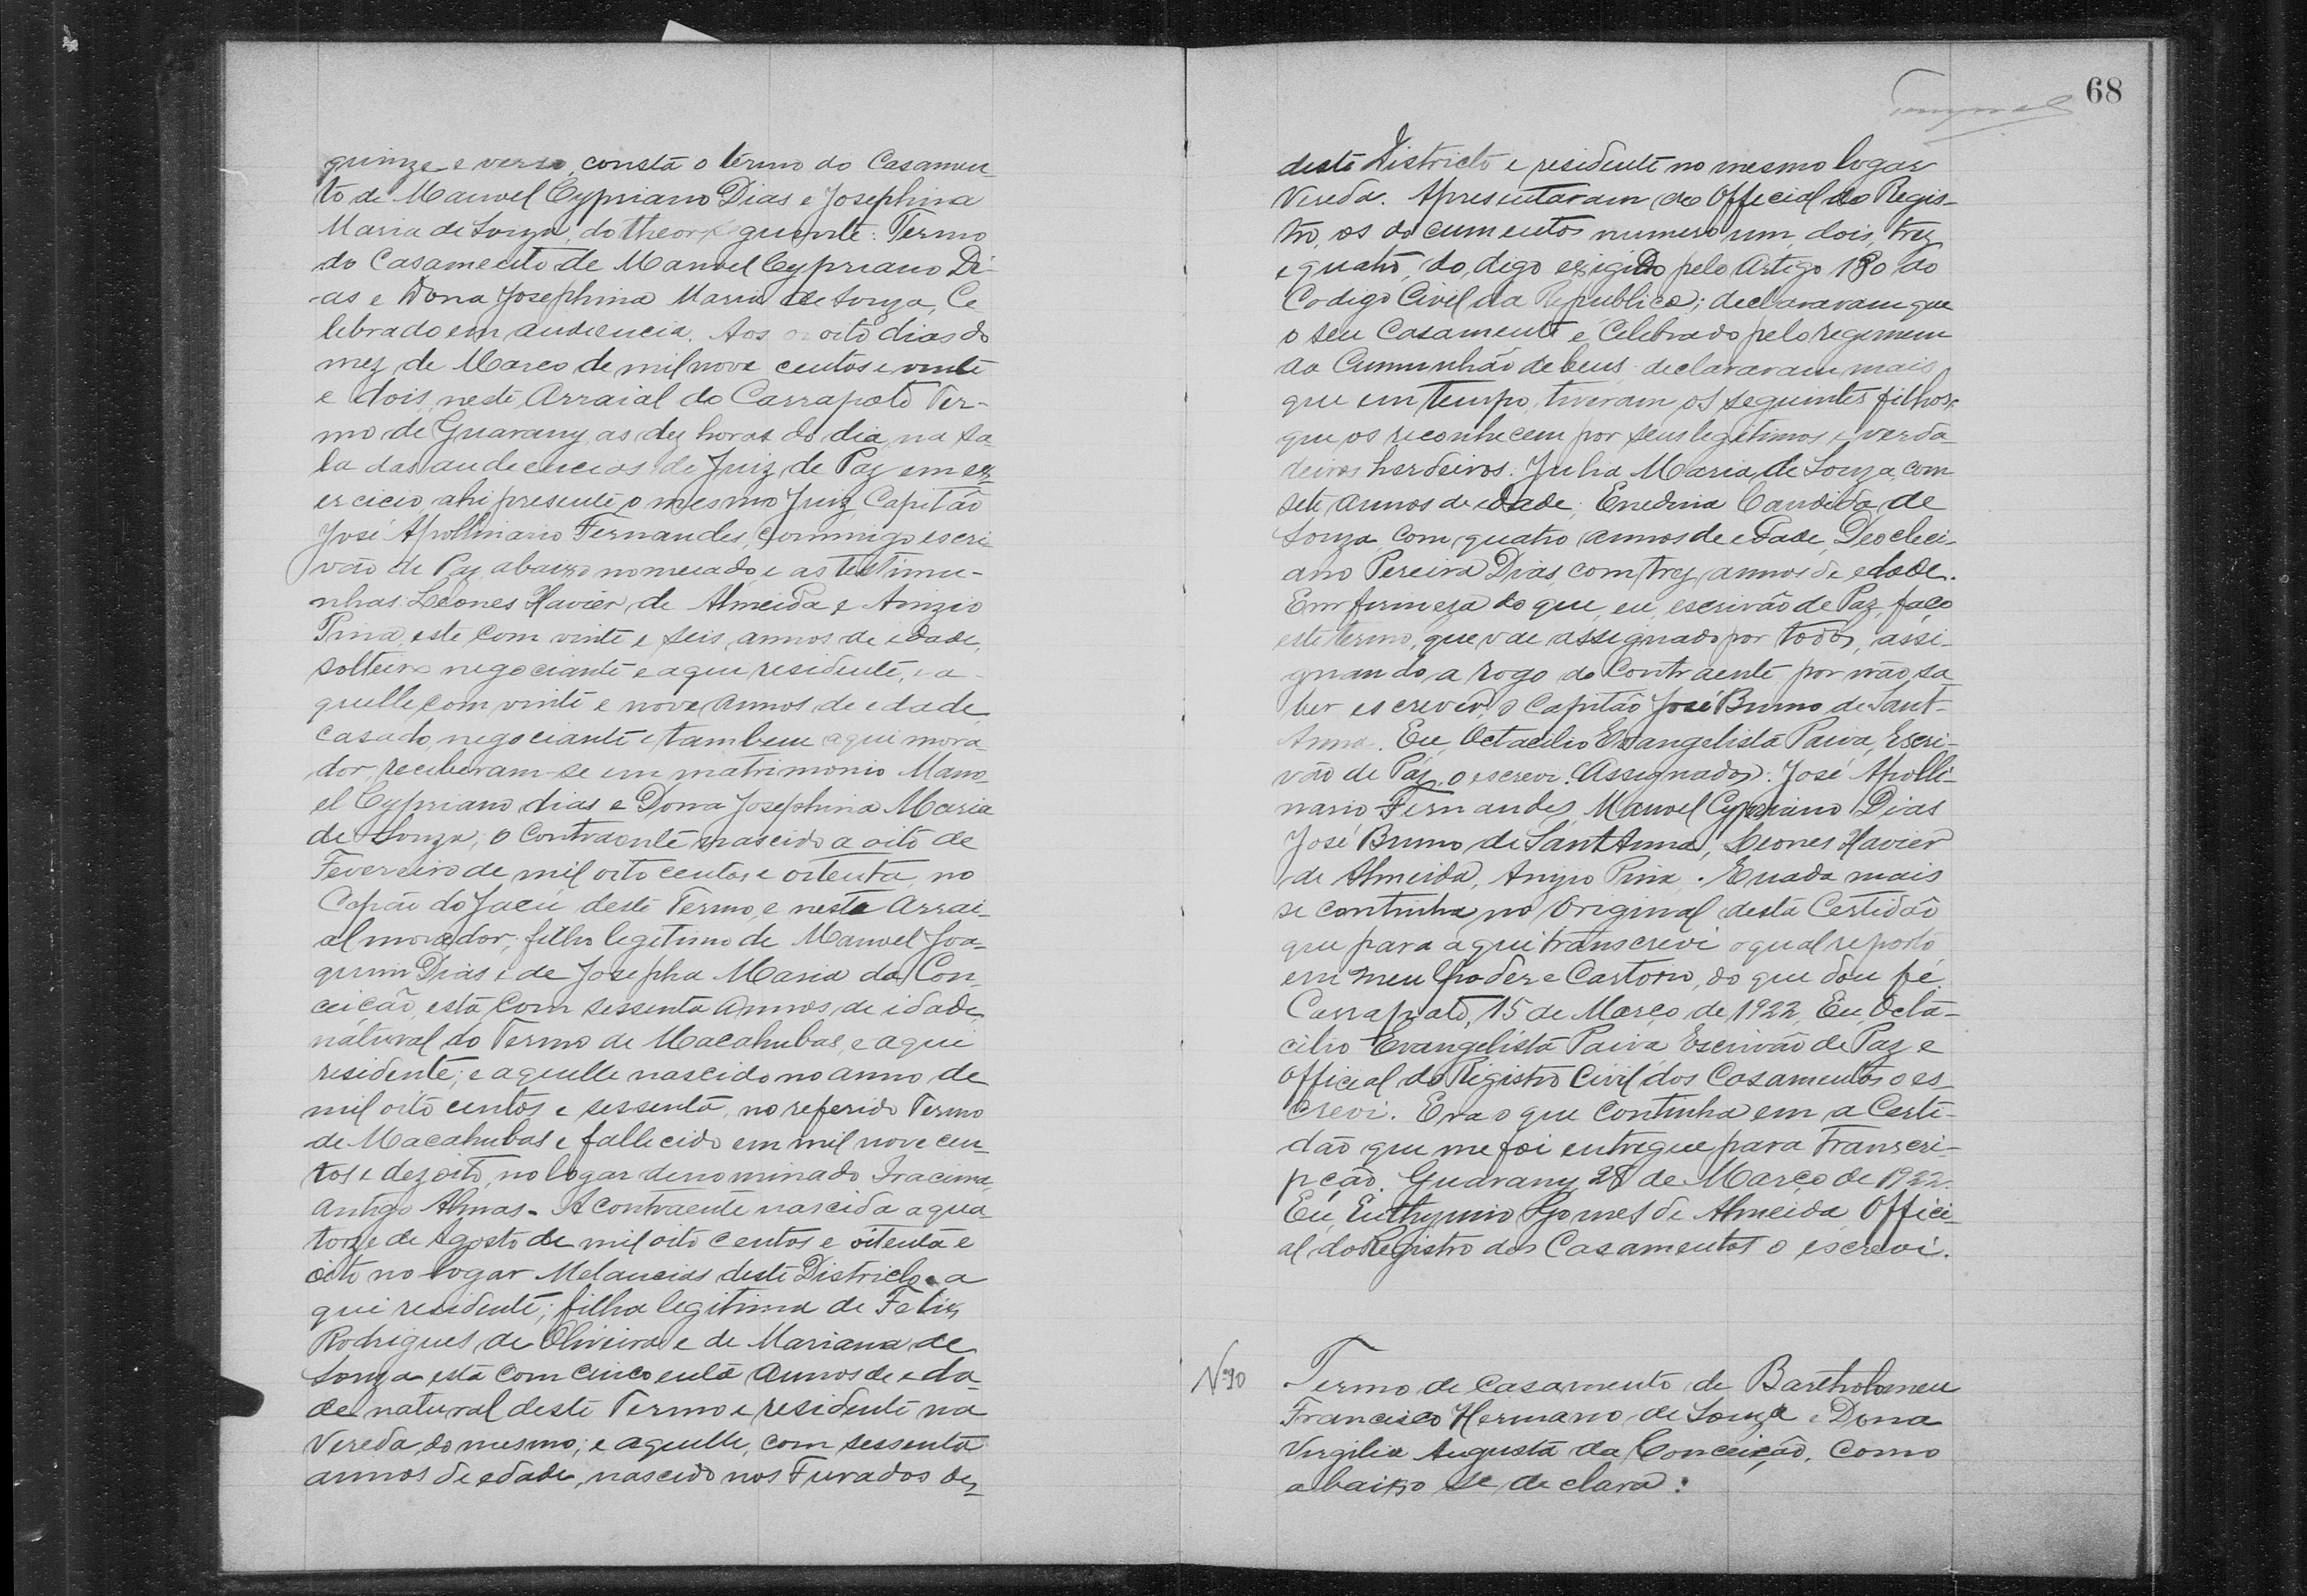 quinze e verso, consta o têrmo do Casamen-
to de Manoel Cypriano Dias e Josephina
Maria de Souza, do theor seguinte: Termo
do Casamento de Manoel Cypriano Di-
as e Dona Josephina Maria de Souza, Ce
lebrado em audiencia. Aos oito dias do
mez de Março de mil nove centos e vinte
e dois, neste Arraial do Carrapato Ter-
mo de Guarany, as dez horas do dia, na sa-
la das audiencias de Juiz de Paz em ex-
ercicio ahi presente o mesmo Juiz, Capitão
José Apollinario Fernandes, commigo escri
vão de Paz abaixo nomeado, e as testimu-
nhas: Leones Xavier de Almeida e Anizio
Pina, este com vinte e seis annos de idade,
solteiro negociante e aqui residente, e a-
quelle com vinte e nove annos de edade
casado, negociante e tambem aqui mora-
dor, receberam-se em matrimonio Mano-
el Cypriano dias e Dona Josephina Maria
de Souza; o contraente nascido a oito de
Fevereiro de mil oito centos e oitenta, no
Capão do Jacú deste Termo, e neste Arrai-
al morador; filho legitimo de Manoel Joa-
quim Dias e de Josepha Maria da Con-
ceição, esta com sessenta annos de idade,
natural do Termo de Macahubas, e aqui
residente; e aquelle nascido no anno de
mil oito centos e sessenta, no referido Termo
de Macahubas e fallecido em mil nove cen-
tos e dezoito, no logar denominado Iracema,
antigo Almas. A contraente nascida a qua-
torze de Agosto de mil oito centos e oitenta e
oito no logar Melancias deste Districto e a
qui residente; filha legitima de Felix
Rodrigues de Oliveira e de Mariana de
Souza esta com cincoenta annos de eda-
de natural deste Termo e residente na
Vereda do mesmo; e aquelle, com sessenta
annos de edade, nascido nos Furados des-
68
deste Districto e residente no mesmo logar
Vereda. Apresentaram ao Official do Regis-
tro, os documentos numero um, dois, trez
e quatro, do, digo exigido pelo Artigo 180 do
Codigo Civil da Republica; declararam que
o seu Casamento é Celebrado pelo regimem
da Cummunhão de bens; declararam mais
que em tempo, tiveram os seguintes filhos,
que os reconhecem por seus legitimos e verda
deiros herdeiros: Julia Maria de Souza, com
sete annos de edade; Enedina Candida de
Souza, com quatro annos de edade, Deocleci-
ano Pereira Dias, com trez annos de edade.
Em firmeza do que, eu, escrivão de Paz, faço
este termo, que vae assignado por todos, assi-
gnando, a rogo da Contraente por não sa
ber escrever, o Capitão José Bruno de Sant-
Anna. Eu, Octacilio Evangelista Paiva, Escri-
vão de Paz, o escrevi. (Assignados): José Apolli-
nario Fernandes, Manoel Cypriano Dias
José Bruno de Sant'Anna, Leones Xavier
de Almeida, Anizio Pina. E nada mais
se continha no Original desta Certidão
que para aqui transcrevi o qual reporto
em meu poder e Cartorio, do que dou fé.
Carrapato, 15 de Março de 1922. Eu, Octa-
cilio Evangelista Paiva Escrivão de Paz e
Official do Registro Civil dos Casamentos o es-
crevi. Era o que continha em a Certi-
dão que me foi entregue para transcri-
pção. Guarany 28 de Março de 1922.
Eu, Euthymio Gomes de Almeida Offici-
al do Registro dos Casamentos o escrevi.
Nº 90
Termo de Casamento de Bartholomeu
Francisco Hermano de Souza e Dona
Virgilia Augusta da Conceição, como
abaixo se declara: